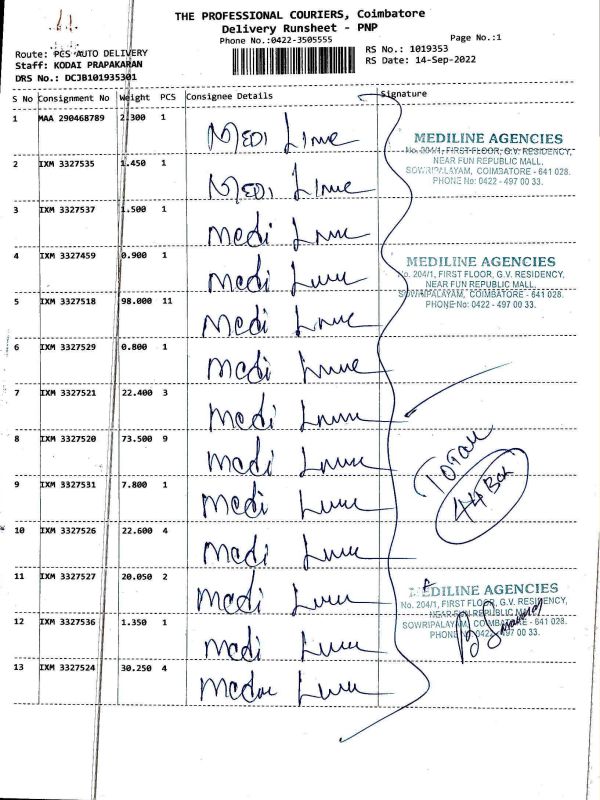 THE PROFESSIONAL COURIERS, Coimbatore
Delivery Runsheet - PNP
Phone No.:0422-3505555
Page No.:1
Route: PCS AUTO DELIVERY
Staff: KODAI PRAPAKARAN
DRS No.: DCJB101935301
RS No.: 1019353
RS Date: 14-Sep-2022
S No Consignment No Weight PCS Consignee Details Signature
1 MAA 290468789 2.300 1 MEDI Line
2 IXM 3327535 1.450 1 MEDI Line
3 IXM 3327537 1.500 1 medi Line
4 IXM 3327459 0.900 1 medi Line
5 IXM 3327518 98.000 11 medi Line
6 IXM 3327529 0.800 1 medi Line
7 IXM 3327521 22.400 3 medi Line
8 IXM 3327520 73.500 9 medi Line
9 IXM 3327531 7.800 1 medi Line
10 IXM 3327526 22.600 4 medi Line
11 IXM 3327527 20.050 2 medi Line
12 IXM 3327536 1.350 1 medi Line
13 IXM 3327524 30.250 4 Line
MEDILINE AGENCIES
No. 204/1, FIRST FLOOR, G.V. RESIDENCY,
NEAR FUN REPUBLIC MALL,
SOWRIPALAYAM, COIMBATORE - 641 028.
PHONE No: 0422 - 497 00 33.
MEDILINE AGENCIES
No. 204/1, FIRST FLOOR, G.V. RESIDENCY,
NEAR FUN REPUBLIC MALL,
SOWRIPALAYAM, COIMBATORE - 641 028.
PHONE No: 0422 - 497 00 33.
TOTAL
44 Box
MEDILINE AGENCIES
No. 204/1, FIRST FLOOR, G.V. RESIDENCY,
NEAR FUN REPUBLIC MALL,
SOWRIPALAYAM, COIMBATORE - 641 028.
PHONE No: 0422 - 497 00 33.